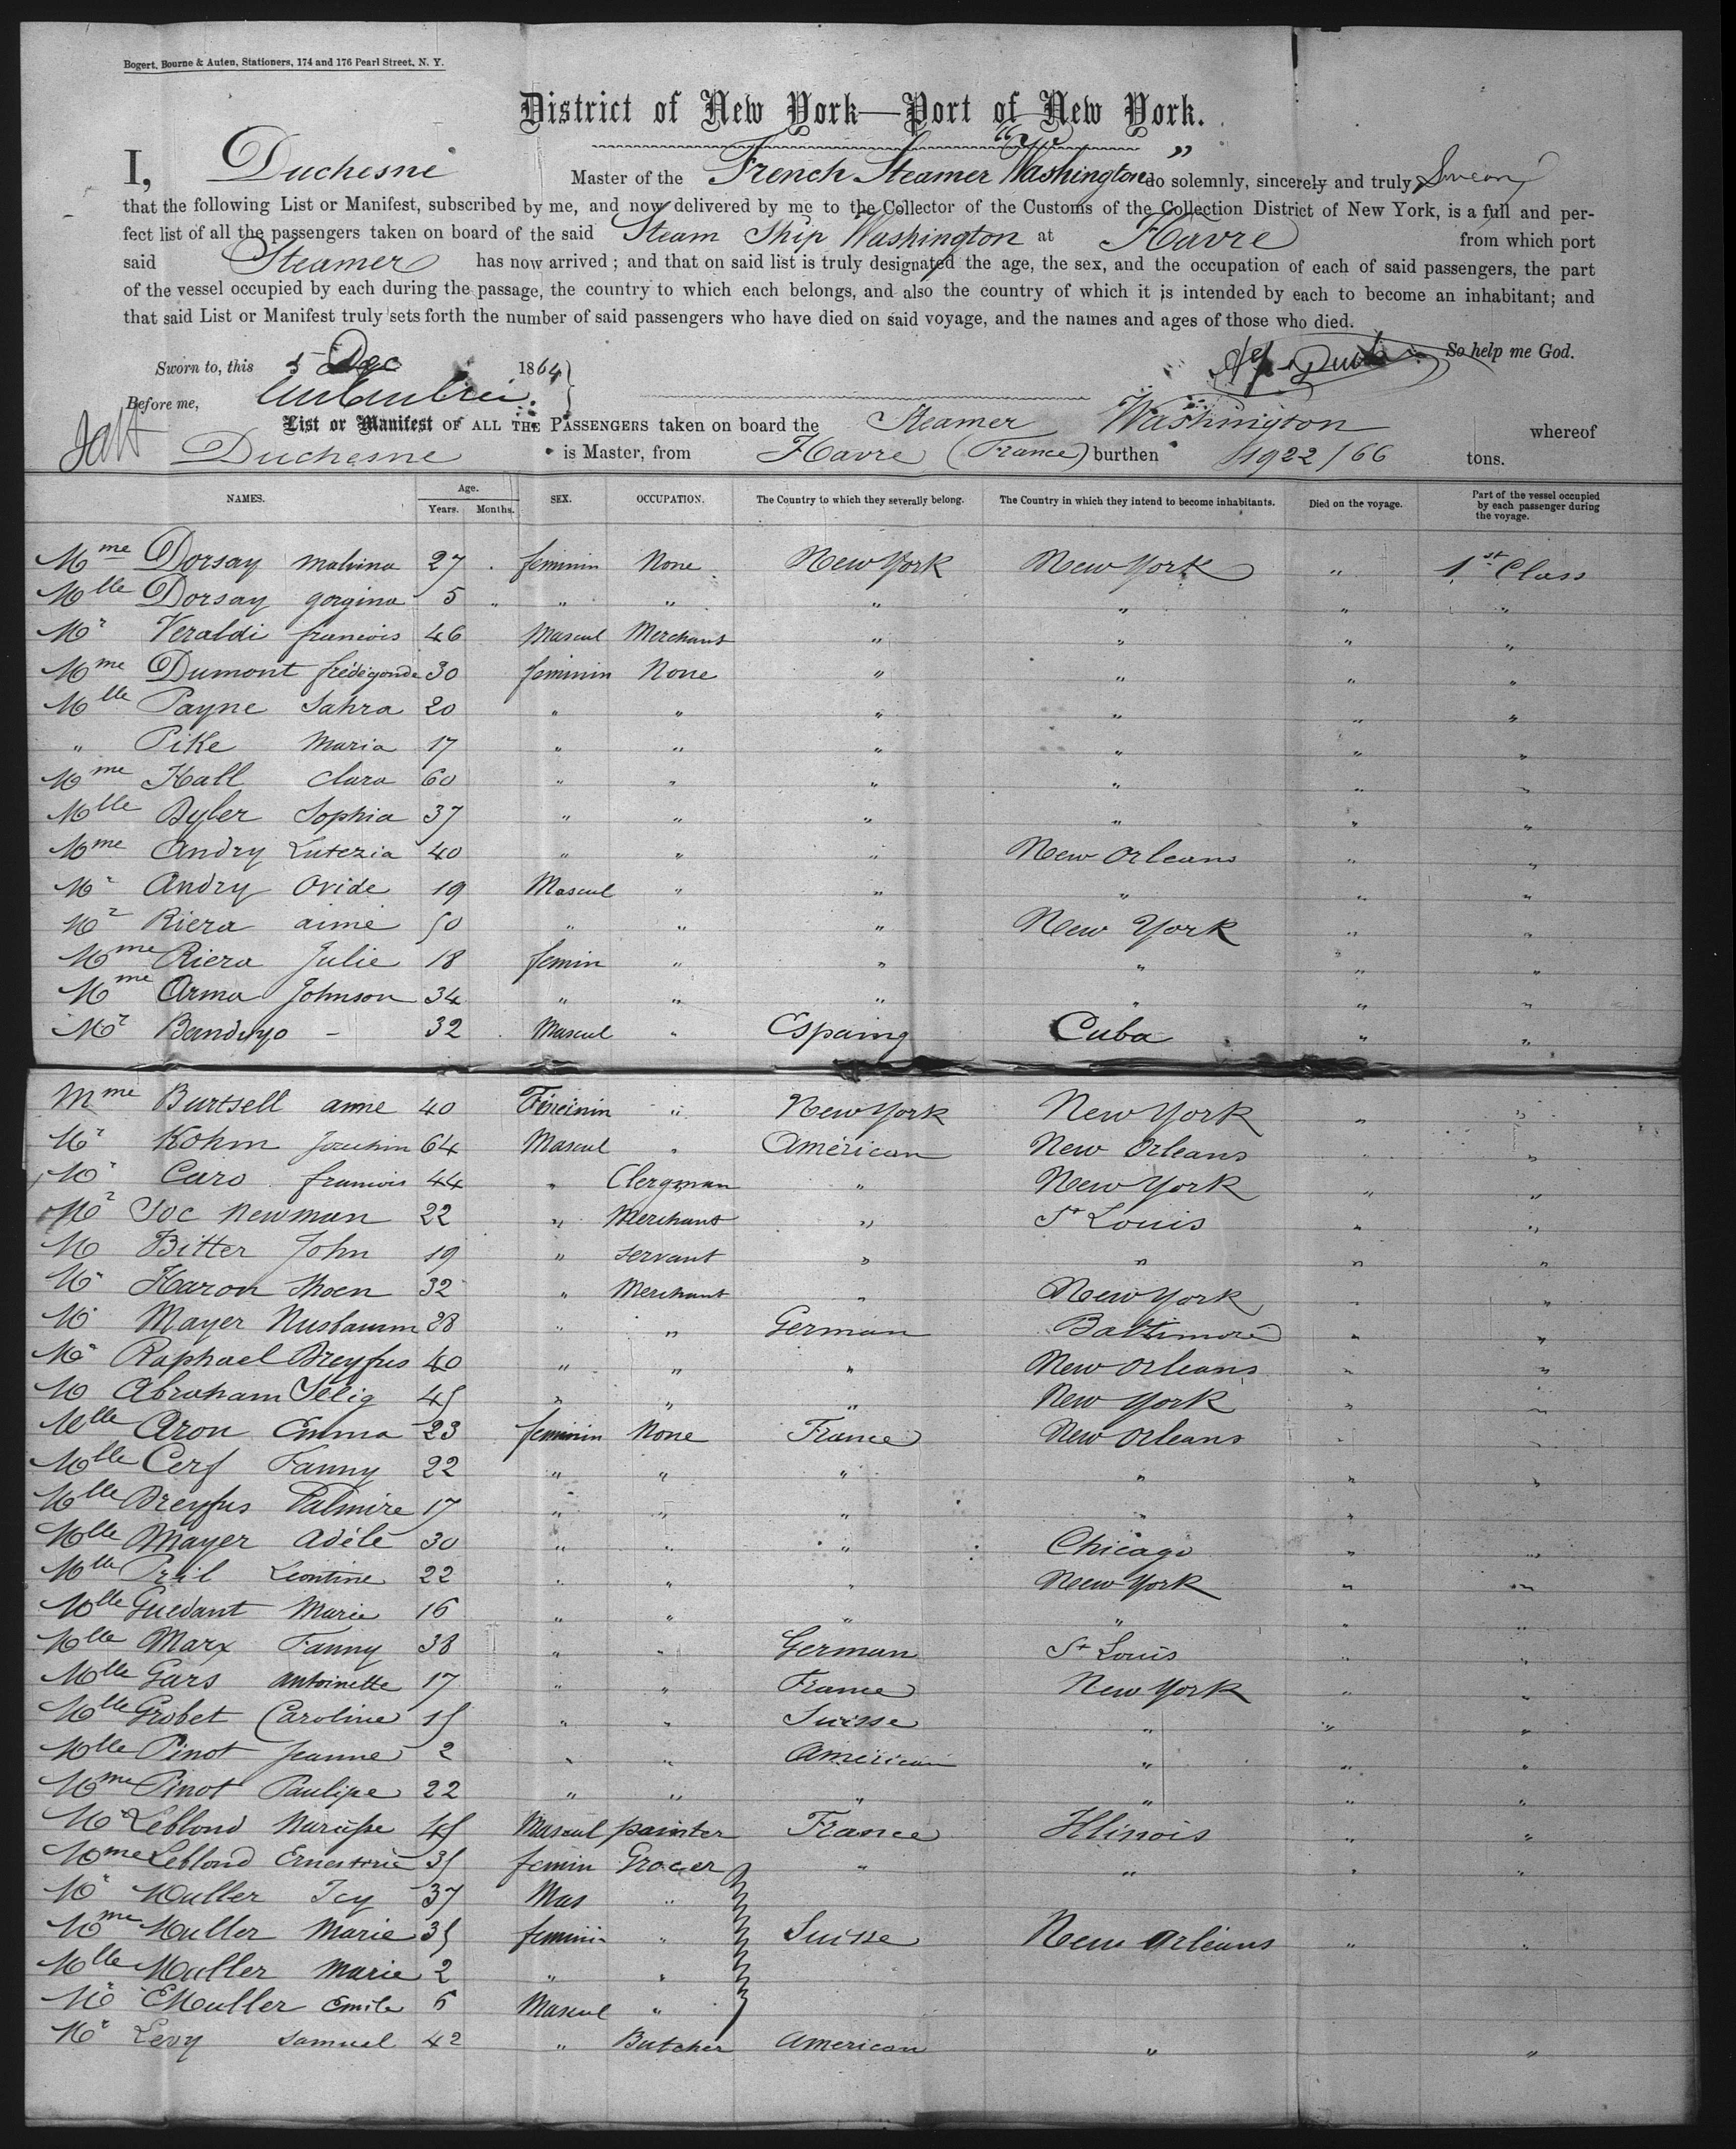 Bogert, Bourne & Auten, Stationers, 174 and 176 Pearl Street, N. Y.
District of New York—Port of New York.
I, Duchesne Master of the French Steamer "Washington" do solemnly, sincerely and truly Swear
that the following List or Manifest, subscribed by me, and now delivered by me to the Collector of the Customs of the Collection District of New York, is a full and per-
fect list of all the passengers taken on board of the said Steam Ship Washington at Havre from which port
said Steamer has now arrived; and that on said list is truly designated the age, the sex, and the occupation of each of said passengers, the part
of the vessel occupied by each during the passage, the country to which each belongs, and also the country of which it is intended by each to become an inhabitant; and
that said List or Manifest truly sets forth the number of said passengers who have died on said voyage, and the names and ages of those who died.
So help me God.
Sworn to, this 5 Dec 1864
Before me,
List or Manifest OF ALL THE PASSENGERS taken on board the Steamer Washington whereof
Duchesne is Master, from Havre (France) burthen 1922/66 tons.
NAMES. Age. Years. Months. SEX. OCCUPATION. The Country to which they severally belong. The Country in which they intend to become inhabitants. Died on the voyage. Part of the vessel occupied by each passenger during the voyage.
Mme Dorsay malvina 27 feminin None New York New York " 1st Class
Mlle Dorsay gorgina 5 " " " " " " "
Mr Veraldi francois 46 Mascul Merchant " " " "
Mme Dumont frédégonde 30 feminin None " " " "
Mlle Payne Sahra 20 " " " " " "
" Pike Maria 17 " " " " " "
Mme Hall Clara 60 " " " " " "
Mlle Byler Sophia 37 " " " " " "
Mme Andry Lutezia 40 " " " New Orleans " "
Mr Andry Ovide 19 Mascul " " " " "
Mr Riera aimé 50 " " " New York " "
Mme Riera Julie 18 femin " " " " "
Mme Arma Johnson 34 " " " " " "
Mr Bandujo - 32 Mascul " Espaing Cuba " "
Mme Burtsell anne 40 Feminin " New York New York " "
Mr Kohm Joachim 64 Mascul " Américan New Orleans " "
Mr Caro francois 44 " Clergman " New York " "
Mr Joc Newman 22 " Merchant " St Louis " "
M Bitter John 19 " servant " " " "
Mr Haron Moen 32 " Merchant " New York " "
Mr Mayer Nusbaumn 28 " " German Baltimore " "
Mr Raphael Dreyfus 40 " " " New Orleans " "
M Abraham Selig 45 " " " New York " "
Mlle Aron Emma 23 feminin None France New Orleans " "
Mlle Cerf Fanny 22 " " " " " "
Mlle Dreyfus Palmire 17 " " " " "
Mlle Mayer Adéle 30 " " " Chicago " "
Mlle Leontine 22 " " " New York " "
Mlle Guedant Marie 16 " " " " " "
Mlle Marx Fanny 38 " " German St Louis " "
Mlle Gars Antoinette 17 " " France New York " "
Mlle Grobet Caroline 15 " " Suisse " " "
Mlle Pinot Jeanne 2 " " Américan " " "
Mme Pinot Pauline 22 " " " " " "
Mr Leblond Narcisse 45 Mascul painter France Illinois " "
Mme Leblond Ernestine 35 femin Grocer " " " "
Mr Muller Icy 37 Mas "
Mme Muller Marie 35 feminin " Suisse New Orléans " "
Mlle Muller Marie 2 " "
Mr Muller Emile 6 Mascul "
Mr Levy Samuel 42 " Butcher American " "